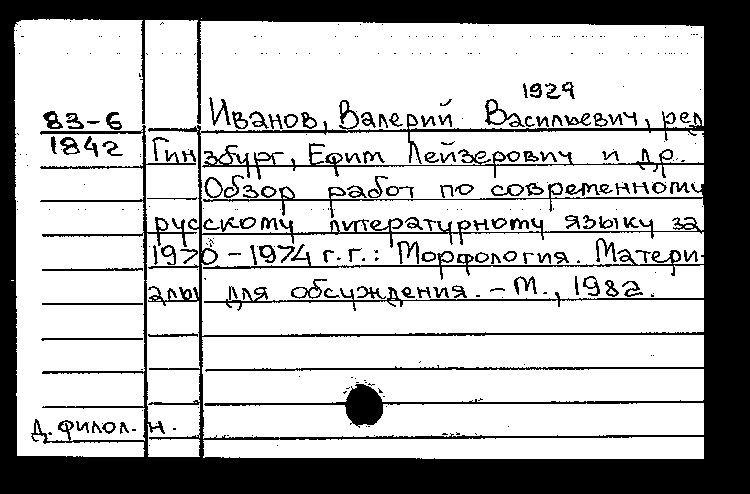 1929
83-6 Иванов, Валерий Васильевич, ред
1842 Гинзбург, Ефим Лейзерович и др.
Обзор работ по современному
русскому литературному языку за
1970-1974 г.г.: Морфология. Матери-
алы для обсуждения. - М., 1982.
Д. филол. н.